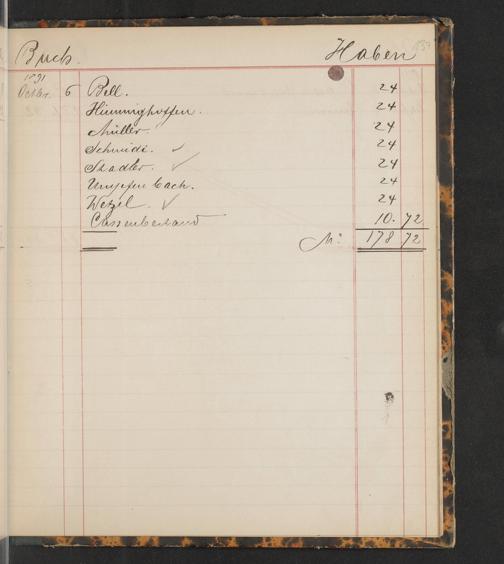 Buch. Haben
1891
Octbr. 6 Bell. 24
Himminghoffen. 24
Müller. 24
Schmidt. ✓ 24
Stadler. ✓ 24
24
Wetzel. ✓ 24
Cassenbestand 10. 72
M: 178 72